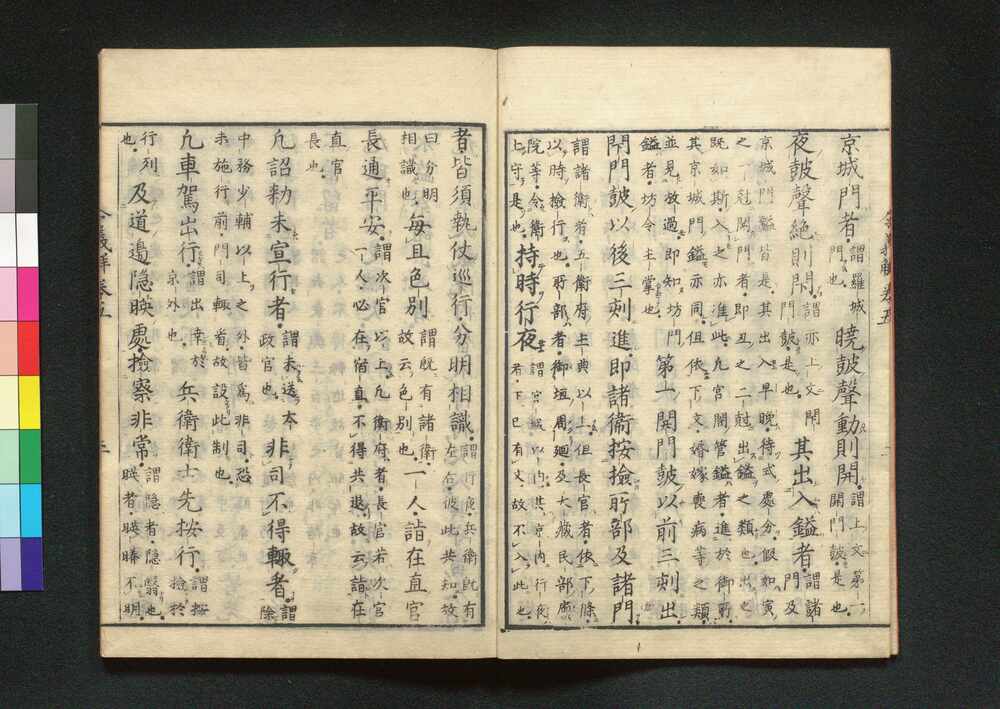 京城門者。謂羅城門也。曉皷聲動則開。謂上文第一開門皷是也。
夜皷聲絶則閇。謂亦上文閇門皷是也。其出入鎰者。謂諸門及
京城門鎰皆是其出入早晩待式處分假如寅
之一尅開門者即丑之二尅出鎰之類也出之
既如斯入之亦准此凢官開管鎰者進於御所
其京城門鎰亦同但依下文婚嫁喪病等之類
並見放過即知坊門
鎰者坊令主掌也
第一開門皷以前三刻出
閇門皷以後三刻進即諸衛按撿所部及諸門
謂諸衛者五衛府主典以上但長官者依下條
以時撿行也所部者御垣周廻及大藏民部廩
院等令衛
士守是也
持時行夜
謂宮城以内其京内行夜
者下已有文故不入此也
者皆須執仗巡行分明相識。謂行夜兵衛既有左右彼此共知故
曰分明
相識也
毎旦色別謂既有諸衛故云色別也一人詣在直官
長通平安。謂次官以上凢衛府者長官若次官
一人必在宿直不得共退故云詣在
直官
長也
凢詔勑未宣行者。謂未送本政官也非司不得輙者謂除
中務少輔以上之外皆爲非司恐
未施行前門司輙省故設此制也
凢車駕出行。謂出幸於京外也。兵衛衛士先按行。謂按撿於
行列
也
及道邉隱暎處撿察非常。謂隱者隱翳也暎者暎暐不明